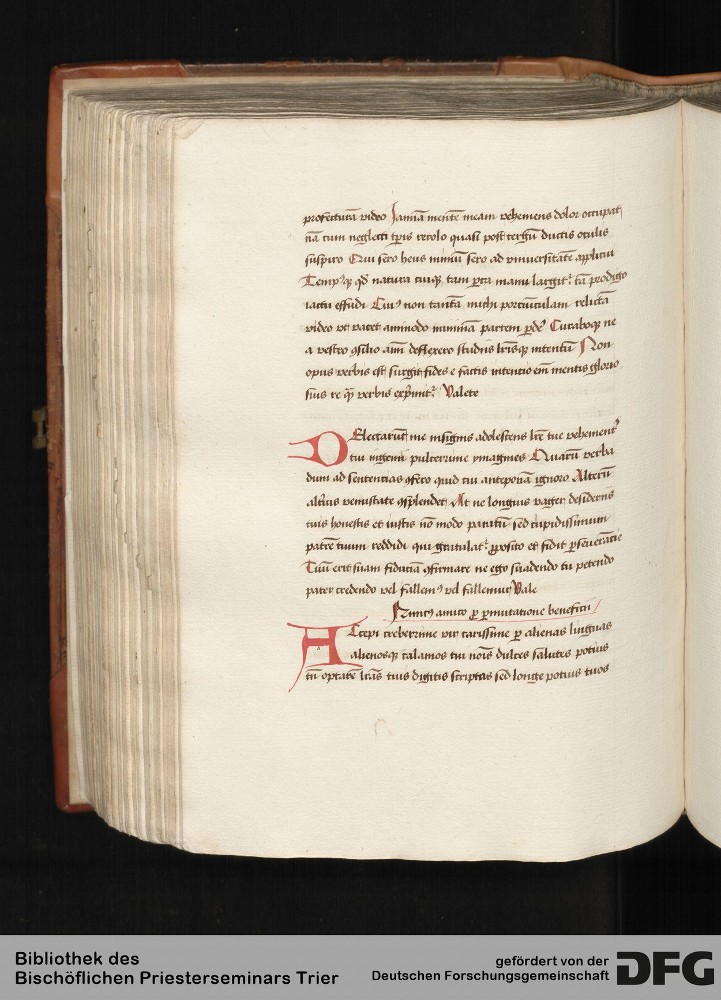 profecturā video Iamiā mentē meam vehemens dolor occupat
nā cum neglecti tp̄is recolo quasi post tergū ductis oculis
suspiro Qui sero heus nimiū sero ad vniuersitatē applicui
natura cuiqꝫ tam manu largit prodigo
iactu effudi non tantā michi portiūculam relictā
video vt vacet minimā partem Curaboqꝫ ne
a vestro ɔsilio aīm deflexero studiis lr̄isqꝫ intentū Non
opus verbis est surgit fides e factis intentio em̄ mentis glorio
sius re verbis Valete
Delectarūt me insignis adolescens lr̄e tue vehement
tui ingenii pulcerrime ymagines Quarū verba
dum ad sententias ɔfero quid cui anteponā ignoro Alterū
alt̓ius venustate ɔsplendet At ne longius vager desideriis
tuis honestis et iustis nō modo paratū sed cupidissimum
patrē tuum reddidi qui gratulat proposito et fidit ꝑseverātie
Tuū erit suam fiduciā ɔfirmare ne ego suadendo tu petendo
pater credendo vel fallem vel fallemur Vale
amico ꝑmutatione beneficii
Accepi creberrime vir carissime ꝑ alienas linguas
alienosqꝫ calamos tui noīs dulces salutes potius
tn̄ optatē lr̄as tuis digitis scriptas sed longe potius tuos
Bibliothek des
Bischöflichen Priesterseminars Trier
gefördert von der
Deutschen Forschungsgemeinschaft
DFG